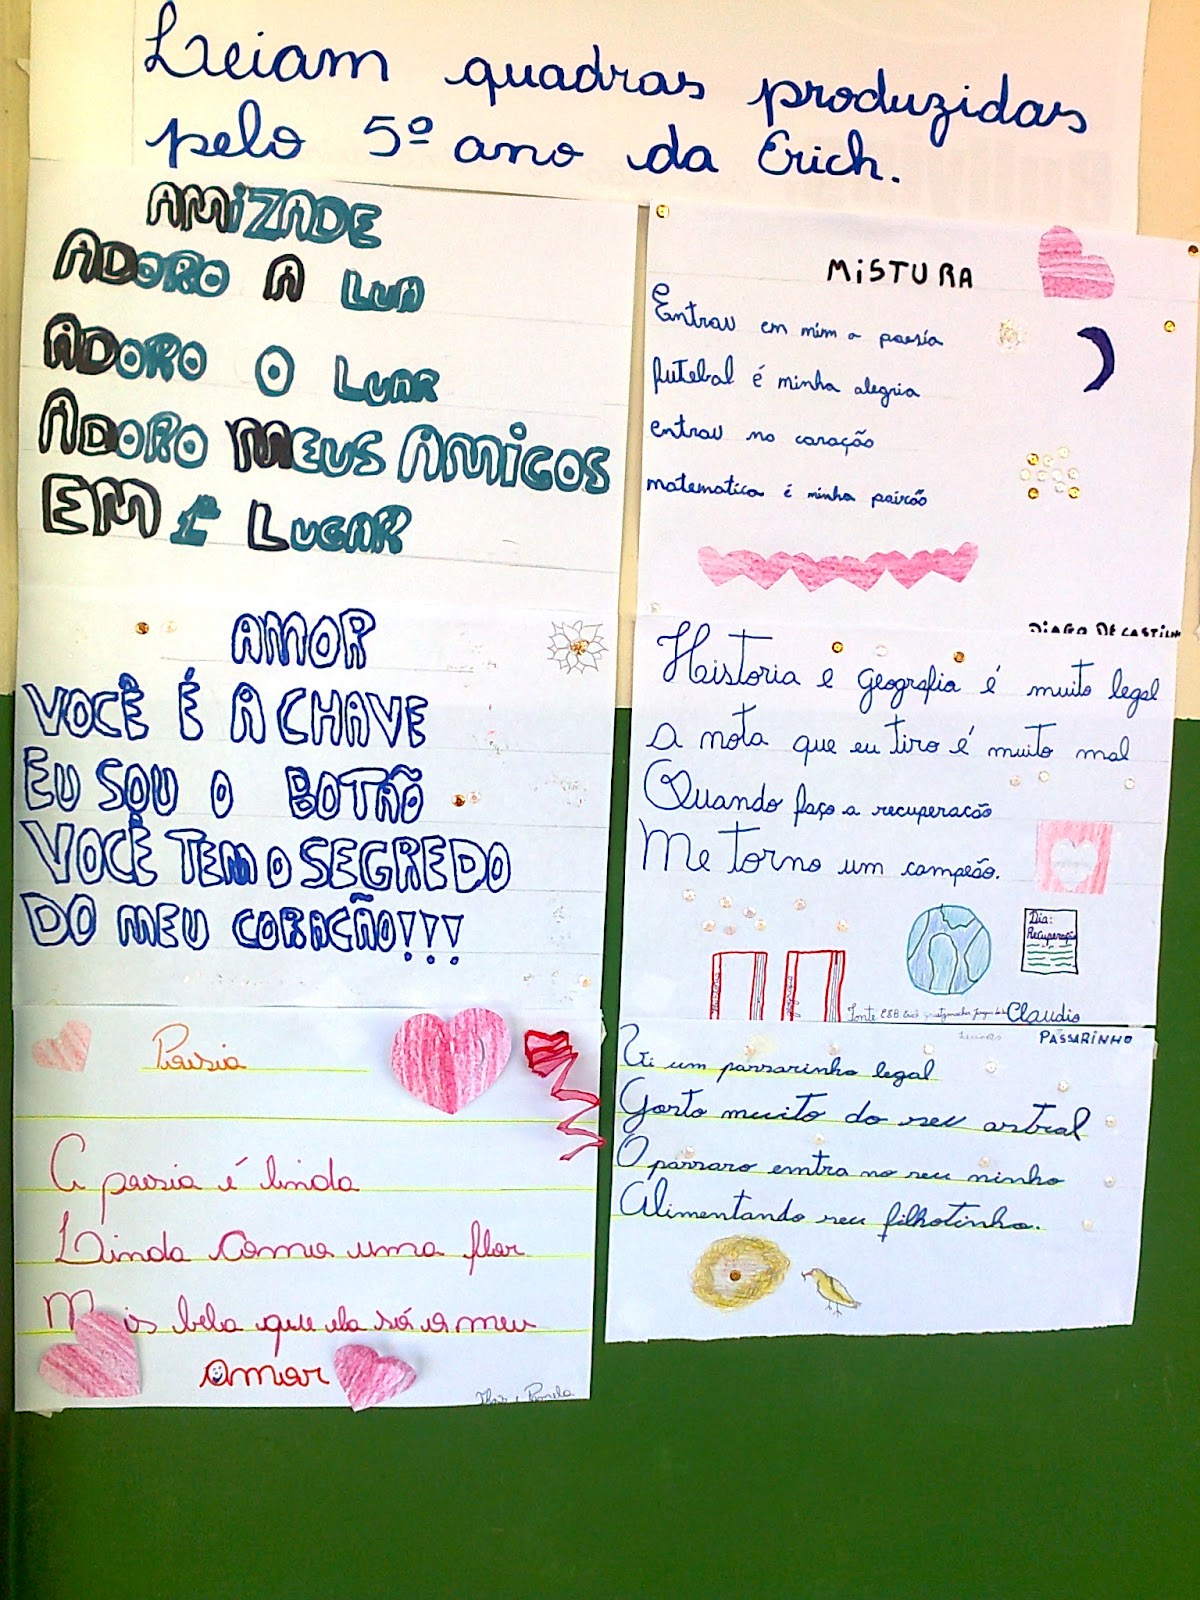 Leiam quadras produzidas
pelo 5º ano da Erich.
AMIZADE
ADORO A LUA
ADORO O LUAR
ADORO MEUS AMIGOS
EM 1º LUGAR
AMOR
VOCÊ É A CHAVE
EU SOU O BOTÃO
VOCÊ TEM O SEGREDO
DO MEU CORAÇÃO!!!
Poesia
A poesia é linda
Linda como uma flor
Mais bela que ela só o meu
amor
Pamela
MISTURA
Entrou em mim a poesia
futebol é minha alegria
entrou no coração
matematica é minha paixão
DIAGO DE CASTILH
Historia e geografia é muito legal
A nota que eu tiro é muito mal
Quando faço a recuperacão
Me torno um campeão.
Dia:
Recuperação
Fonte
Claudio
PASSARINHO
Vi um passarinho legal
Gosto muito do seu astral
O pássaro emtra no seu ninho
Alimentando seu filhotinho.